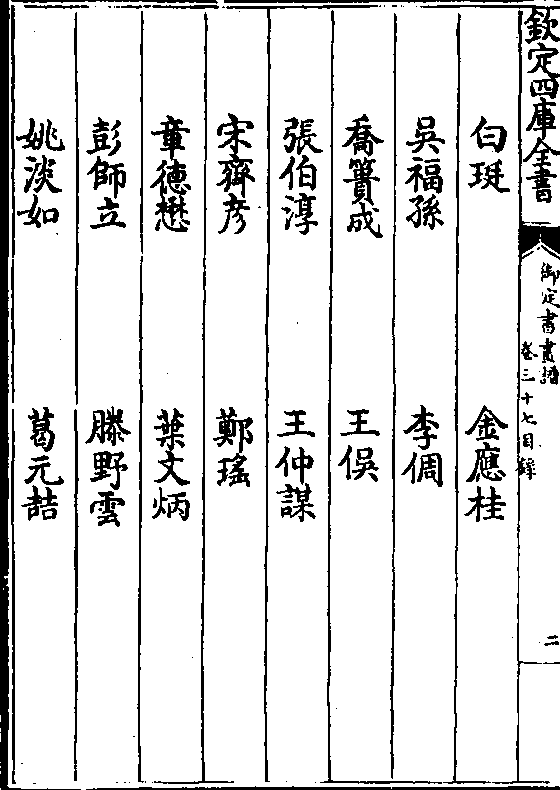 欽定四庫全書
御定書畫譜
卷三十七目録
二
白珽
金應桂
吳福孫
李倜
喬簣成
王俁
張伯淳
王仲謀
宋齊彦
鄭瑤
章德懋
葉文炳
彭師立
滕野雲
姚淡如
葛元喆